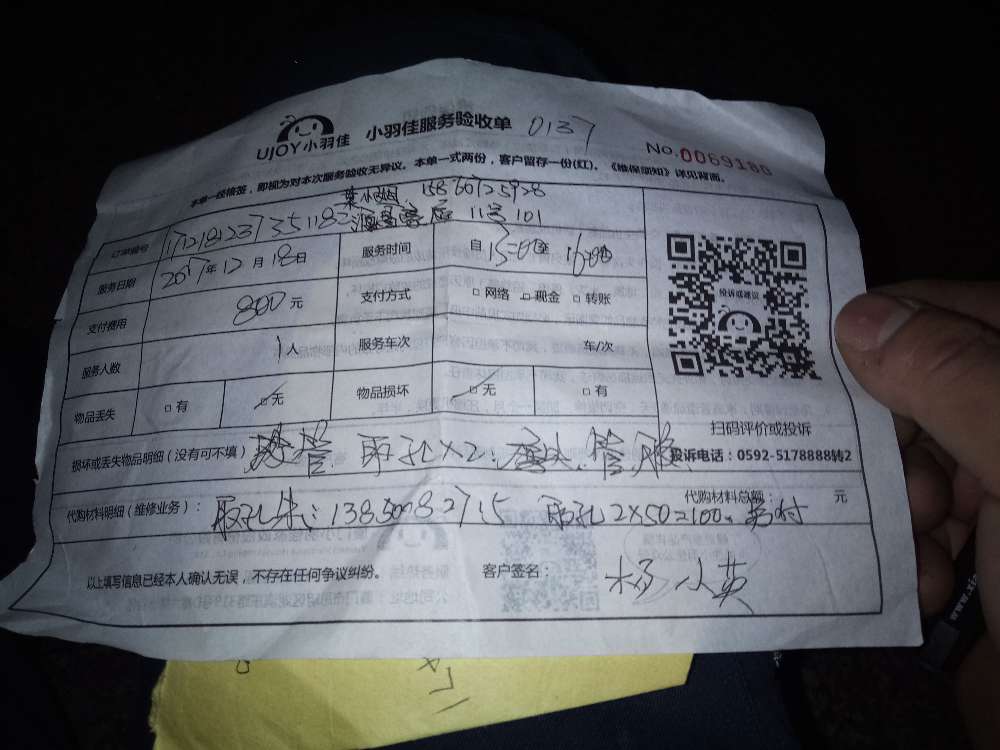 UJOY小羽佳 小羽佳服务验收单 0137
No.0069180
本单一经核签，即视为对本次服务验收无异议。本单一式两份，客户留存一份(红)。《维保须知》详见背面。
订单编号
11号101
服务日期 2017年12月18日 服务时间 自15:00至16:00
支付费用 800元 支付方式 □网络 □现金 □转账
服务人数 1人 服务车次 车/次
物品丢失 □有 □无 物品损坏 □无 □有
投诉或建议
扫码评价或投诉
投诉电话：0592-5178888转2
损坏或丢失物品明细（没有可不填） 取孔X2
代购材料总额： 元
代购材料明细（维修业务）： 取孔朱：13850082715 取孔2X50=100
以上填写信息已经本人确认无误，不存在任何争议纠纷。 客户签名： 杨小英